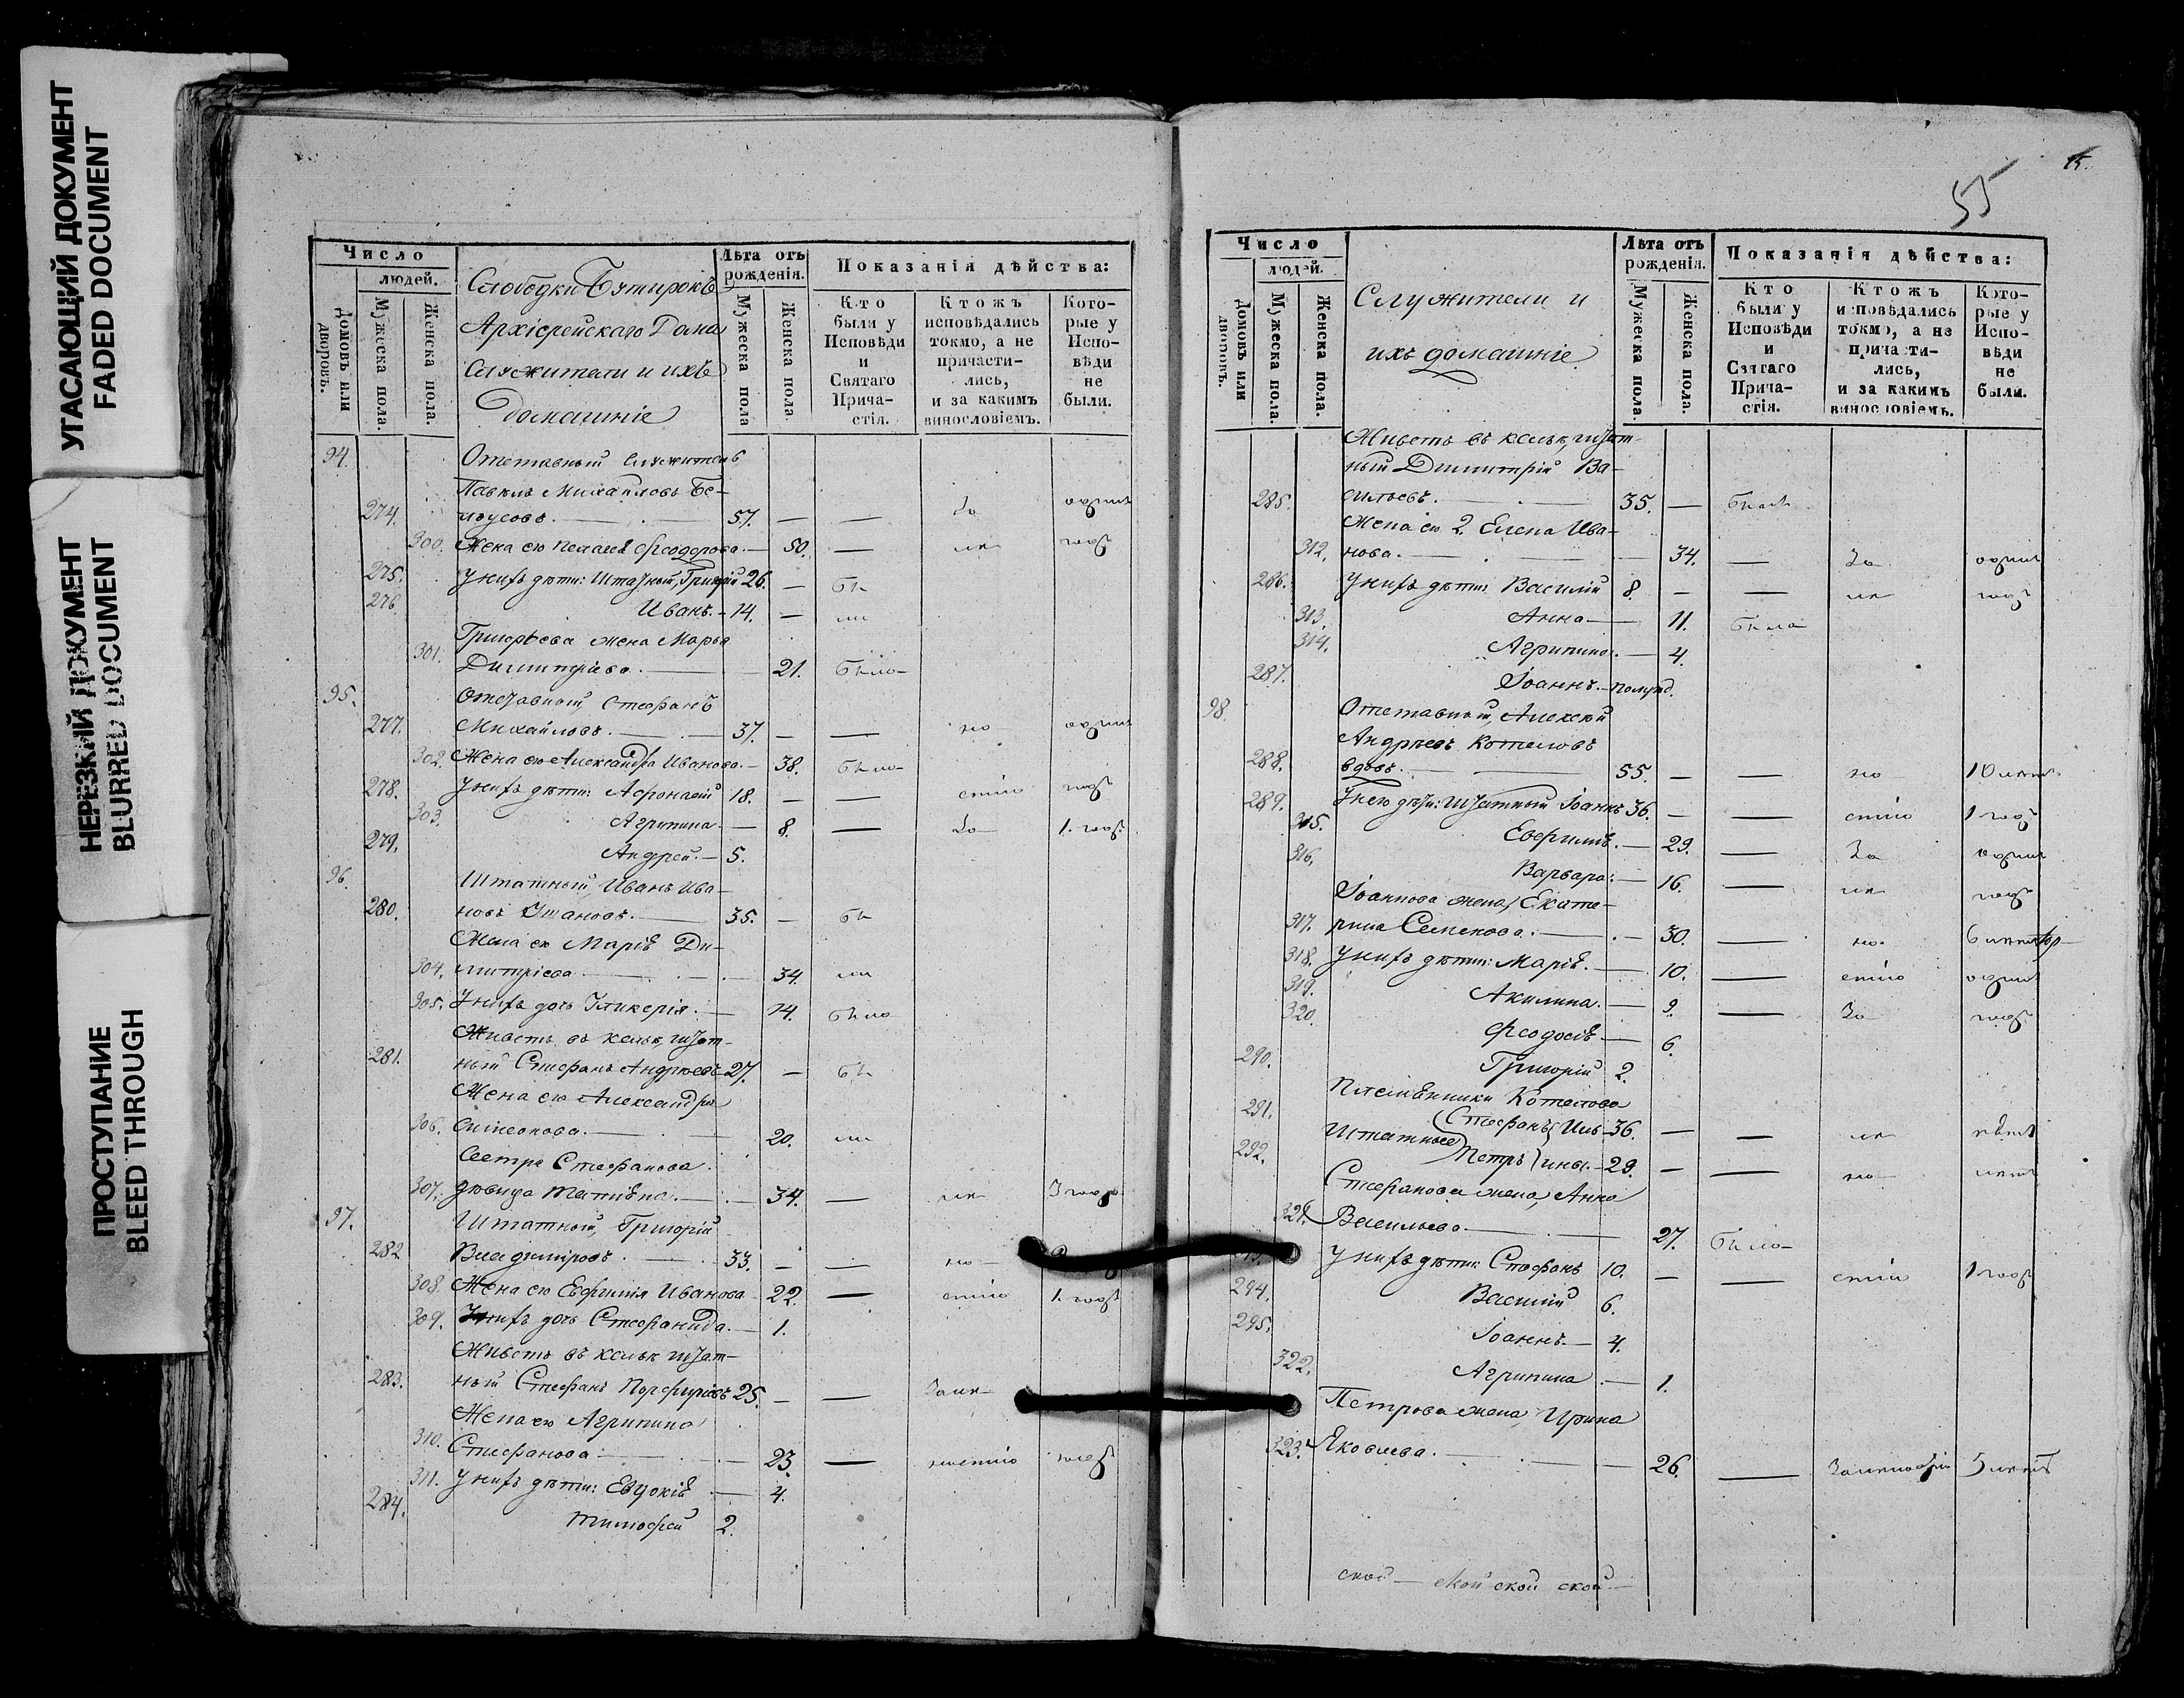 УГАСАЮЩИЙ ДОКУМЕНТ
FADED DOCUMENT
НЕРЕЗКИЙ ДОКУМЕНТ
BLURRED DOCUMENT
ПРОСТУПАНИЕ
BLEED THROUGH
Число
людей.
Домовъ или дворовъ.
Мужеска пола.
Женска пола.
Слободки Бутырокъ
Архіерейскаго Дома
Служители и ихъ
домашніе
Лѣта отъ рожденія.
Мужеска пола
Женска пола.
Показанія дѣйства:
Кто были у Исповѣди и Святаго Причастія.
Ктожъ исповѣдались токмо, а не причастились, и за какимъ винословіемъ.
Которые у Исповѣди не были.
94. Отставный служитель
Павелъ Михайловъ Бе-
274. лоусовъ. 57. — — За одинъ
300. Жена его Пелагея Феодорова. 50. — годъ
275. У нихъ дѣти: Штатный, Григорій 26. — бы
276. Иванъ. 14. — ли
Григорьева жена Марья
301. Димитріева. 21. была
95. Отставный, Стефанъ
277. Михайловъ. 37. — — но одинъ
302. Жена его Александра Иванова. 38. была
278. У нихъ дѣти: Афонасій 18. — — стію годъ
303. Агрипина. 8. — За 1. годъ
279. Андрей. 5.
96. Штатный, Иванъ Ива-
280. новъ 35. — бы
Жена ея Марія Ди-
304. митріева 34. ли
305. У нихъ дочь Гликерія. 14. была
Живетъ въ кельѣ штат-
281. ный Стефанъ Андреевъ 27. — бы
Жена его Александра
306. Симеонова. 20. ли
Сестра Стефанова
307. дѣвица Татіана. 34. — 3 года
97. Штатный, Григорій
282 Владиміровъ. 33. — — но
308. Жена его Евфимія Иванова 22. — стію 1. годъ
309. У нихъ дочь Стефанида. 1.
Живетъ въ кельѣ штат-
283. ный Стефанъ Порфирьевъ 25. — —
Жена его Агрипина
310. Стефанова 23. — годъ
311. У нихъ дѣти: Евдокія 4.
284. Тимофей 2.
15.
55
Число
людей.
Домовъ или дворовъ.
Мужеска пола
Женска пола.
Служители и
ихъ домашніе.
Лѣта отъ рожденія.
Мужеска пола.
Женска пола.
Показанія дѣйства:
Кто были у Исповѣди и Святаго Причастія.
Ктожъ исповѣдались токмо, а не причастились, и за какимъ винословіемъ.
Которые у Исповѣди не были.
Живетъ въ кельѣ, штат-
ный Димитрій Ва-
285. сильевъ. 35. — былъ
Жена его 2. Елена Ива-
312. нова. 34. — За одинъ
286. У нихъ дѣти: Василій 8. — — годъ
313. Анна 11. была
314. Агрипина. 4.
287. Іоаннъ.
98. Отставный, Алексѣй
Андреевъ Котеловъ
288. вдовъ. 55. — — но 10 лѣтъ
289. У него дѣти: штатный Іоаннъ 36. — — стію 1 годъ
315. 29. — За одинъ
316. Варвара: 16. — годъ
Іоаннова жена, Екате-
317. рина Семенова. 30. — но
318. У нихъ дѣти: Марія. 10. — стію одинъ
319. Акилина. 9. — За годъ
320. Феодосія 6.
290. Григорій 2.
Племянники Котелова
291. Стефанъ Иль- 36. — —
Штатные
292. Петръ ины. 29. — — но
Стефанова жена, Анна
321. Васильева 27. была
У нихъ дѣти: Стефанъ 10. — — стію 1 годъ
294. Василій 6.
295. Іоаннъ. 4.
322. Агрипина 1.
Петрова жена, Ирина
323. Яковлева. 26. — 5 лѣтъ
ской — ской ской ской